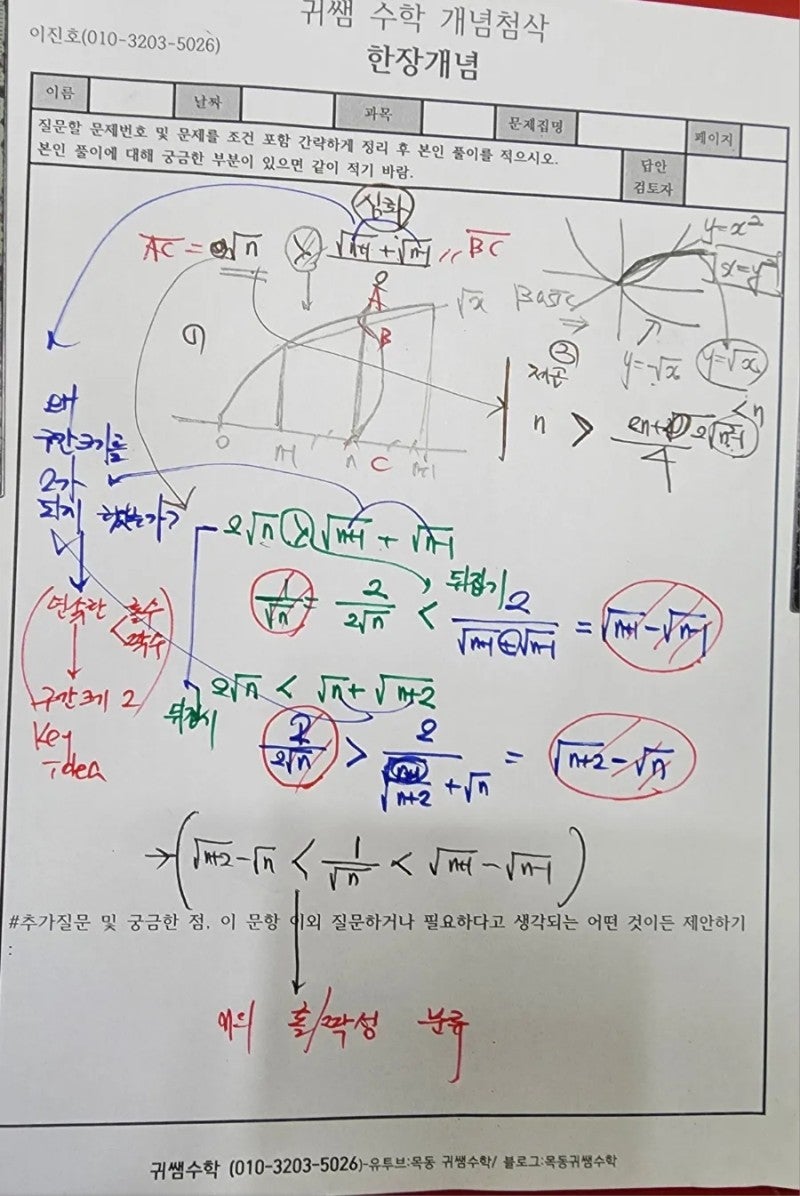 귀쌤 수학 개념첨삭
이진호(010-3203-5026)
한장개념
이름 날짜 과목 문제집명 페이지
질문할 문제번호 및 문제를 조건 포함 간략하게 정리 후 본인 풀이를 적으시오.
본인 풀이에 대해 궁금한 부분이 있으면 같이 적기 바람.
답안
검토자
심화
AC = √n > √n+1 + √n-1 BC
2
y=x²
x=y²
BASIC
y=-√x
y=√x
√x
A
B
C
0 n-1 n n+1
③
제곱
n > 2n+2√n²-1 / 4
<n
왜
구간크기를
2가
되게 했는가?
2√n > √n+1 + √n-1
뒤집기
1/√n = 2/2√n < 2/√n+1+√n-1 = √n+1 - √n-1
연속한 홀수
짝수
구간크기 2
Key
idea
2√n < √n + √n+2
뒤집시
2/2√n > 2/√n+2 + √n = √n+2 - √n
→ (√n+2 - √n < 1/√n < √n+1 - √n-1)
#추가질문 및 궁금한 점, 이 문항 이외 질문하거나 필요하다고 생각되는 어떤 것이든 제안하기
:
n의 홀/짝성 분류
귀쌤수학 (010-3203-5026)-유투브:목동 귀쌤수학/ 블로그:목동귀쌤수학